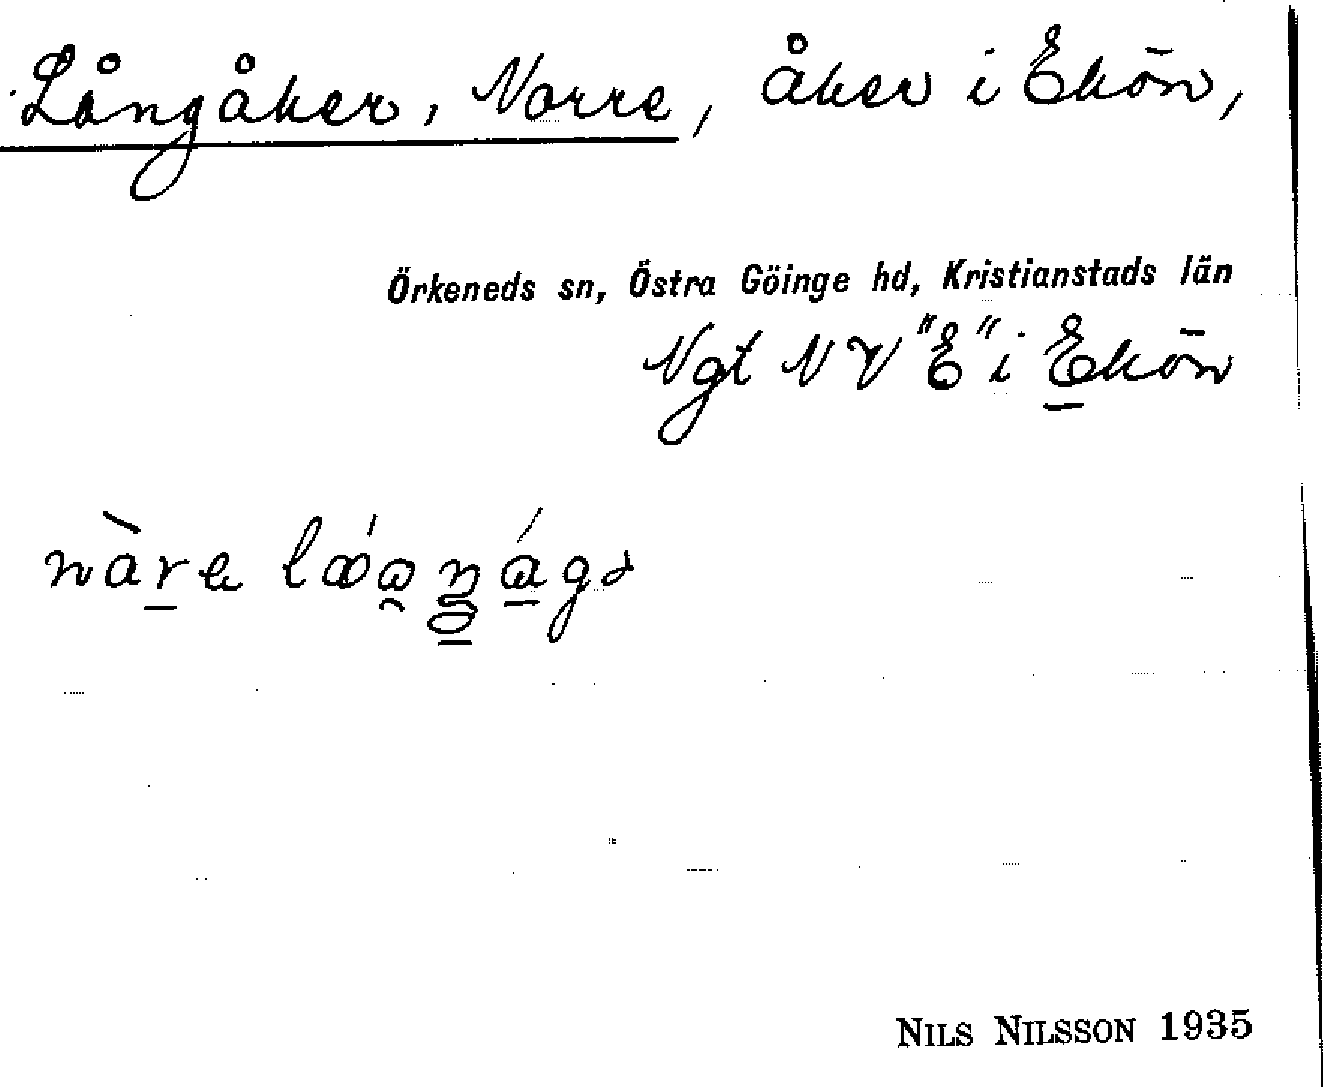 Långåker, Norre, åker i Ekön,
Örkeneds sn, Östra Göinge hd, Kristianstads län
Ngt NV "E" i Ekön
NILS NILSSON 1935